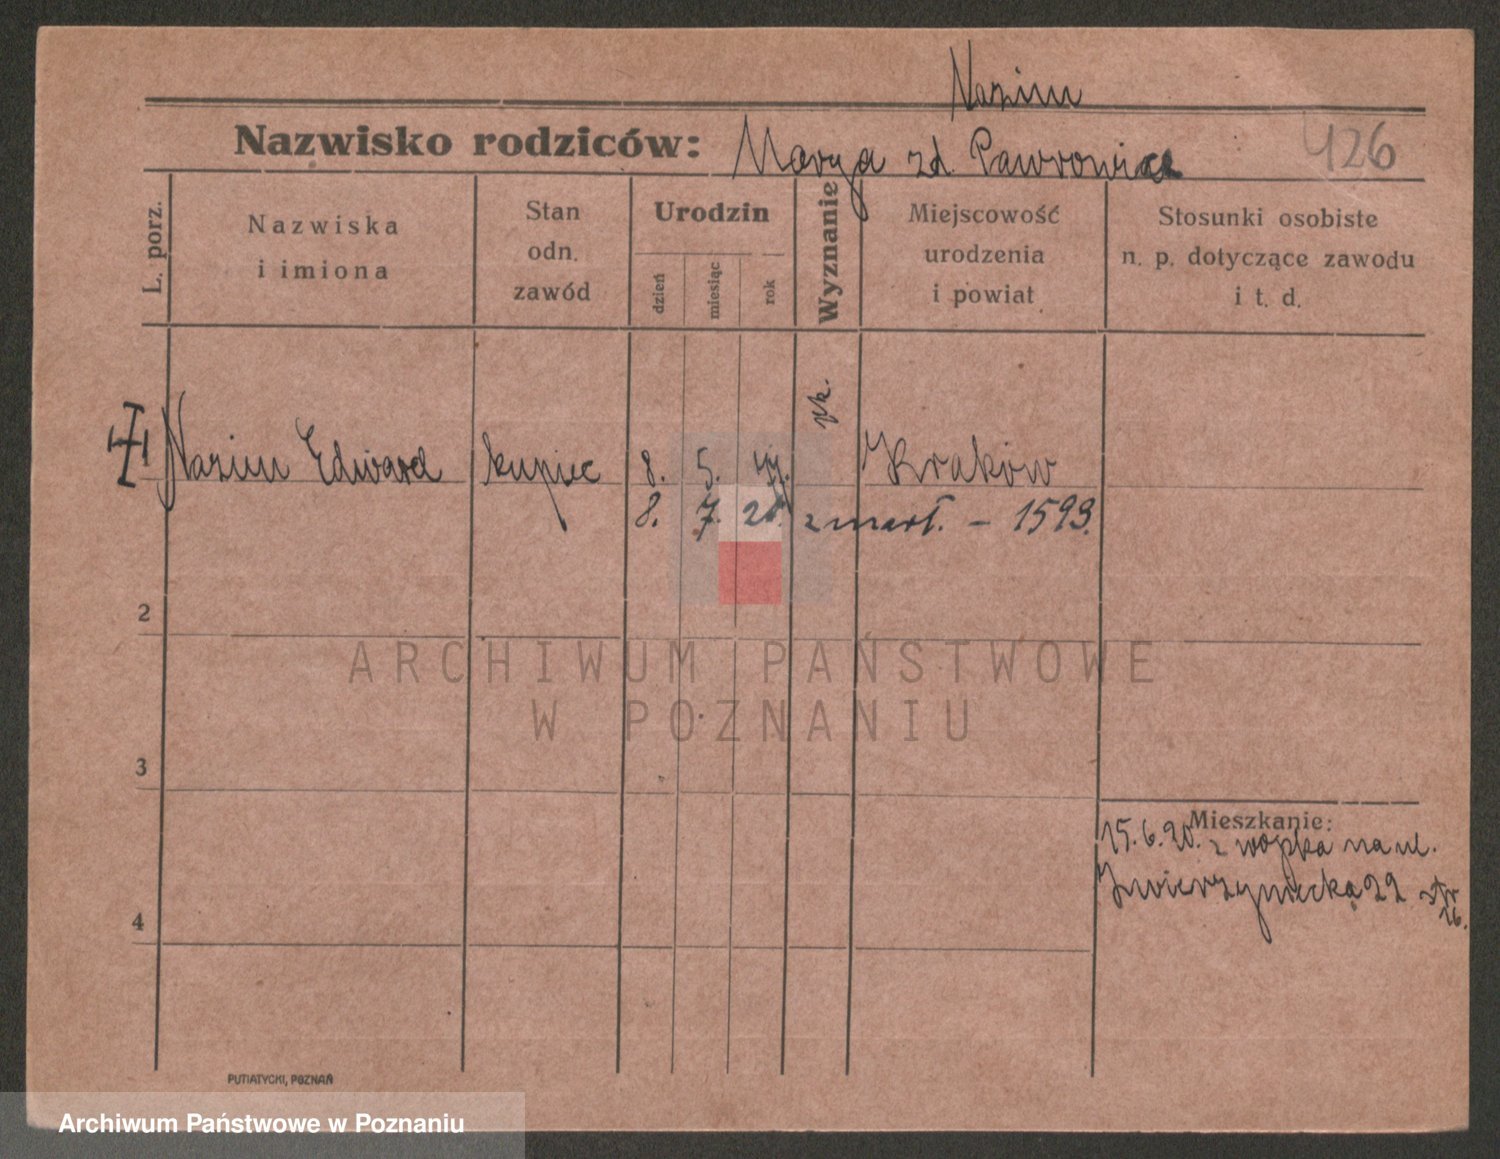 Nazim
Nazwisko rodziców: Marya zd.
426
L. porz.
Nazwiska
i imiona
Stan
odn.
zawód
Urodzin
dzień
miesiąc
rok
Wyznanie
Miejscowość
urodzenia
i powiat
Stosunki osobiste
n. p. dotyczące zawodu
i t. d.
1 Nazim Edward kupiec 8. 5. rk. Kraków
8. 7. zmarł. - 1593.
2
3
4
Mieszkanie:
15.6.20. z wojska na ul.
Zwierzyniecka 22
ARCHIWUM PAŃSTWOWE
W POZNANIU
PUTIATYCKI, POZNAŃ
Archiwum Państwowe w Poznaniu